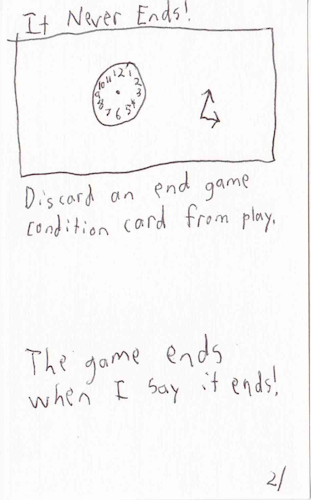 It Never Ends!
10 11 12 1
2
9 3
8 4
7 6 5
Discard an end game
condition card from play.
The game ends
when I say it ends!
2/